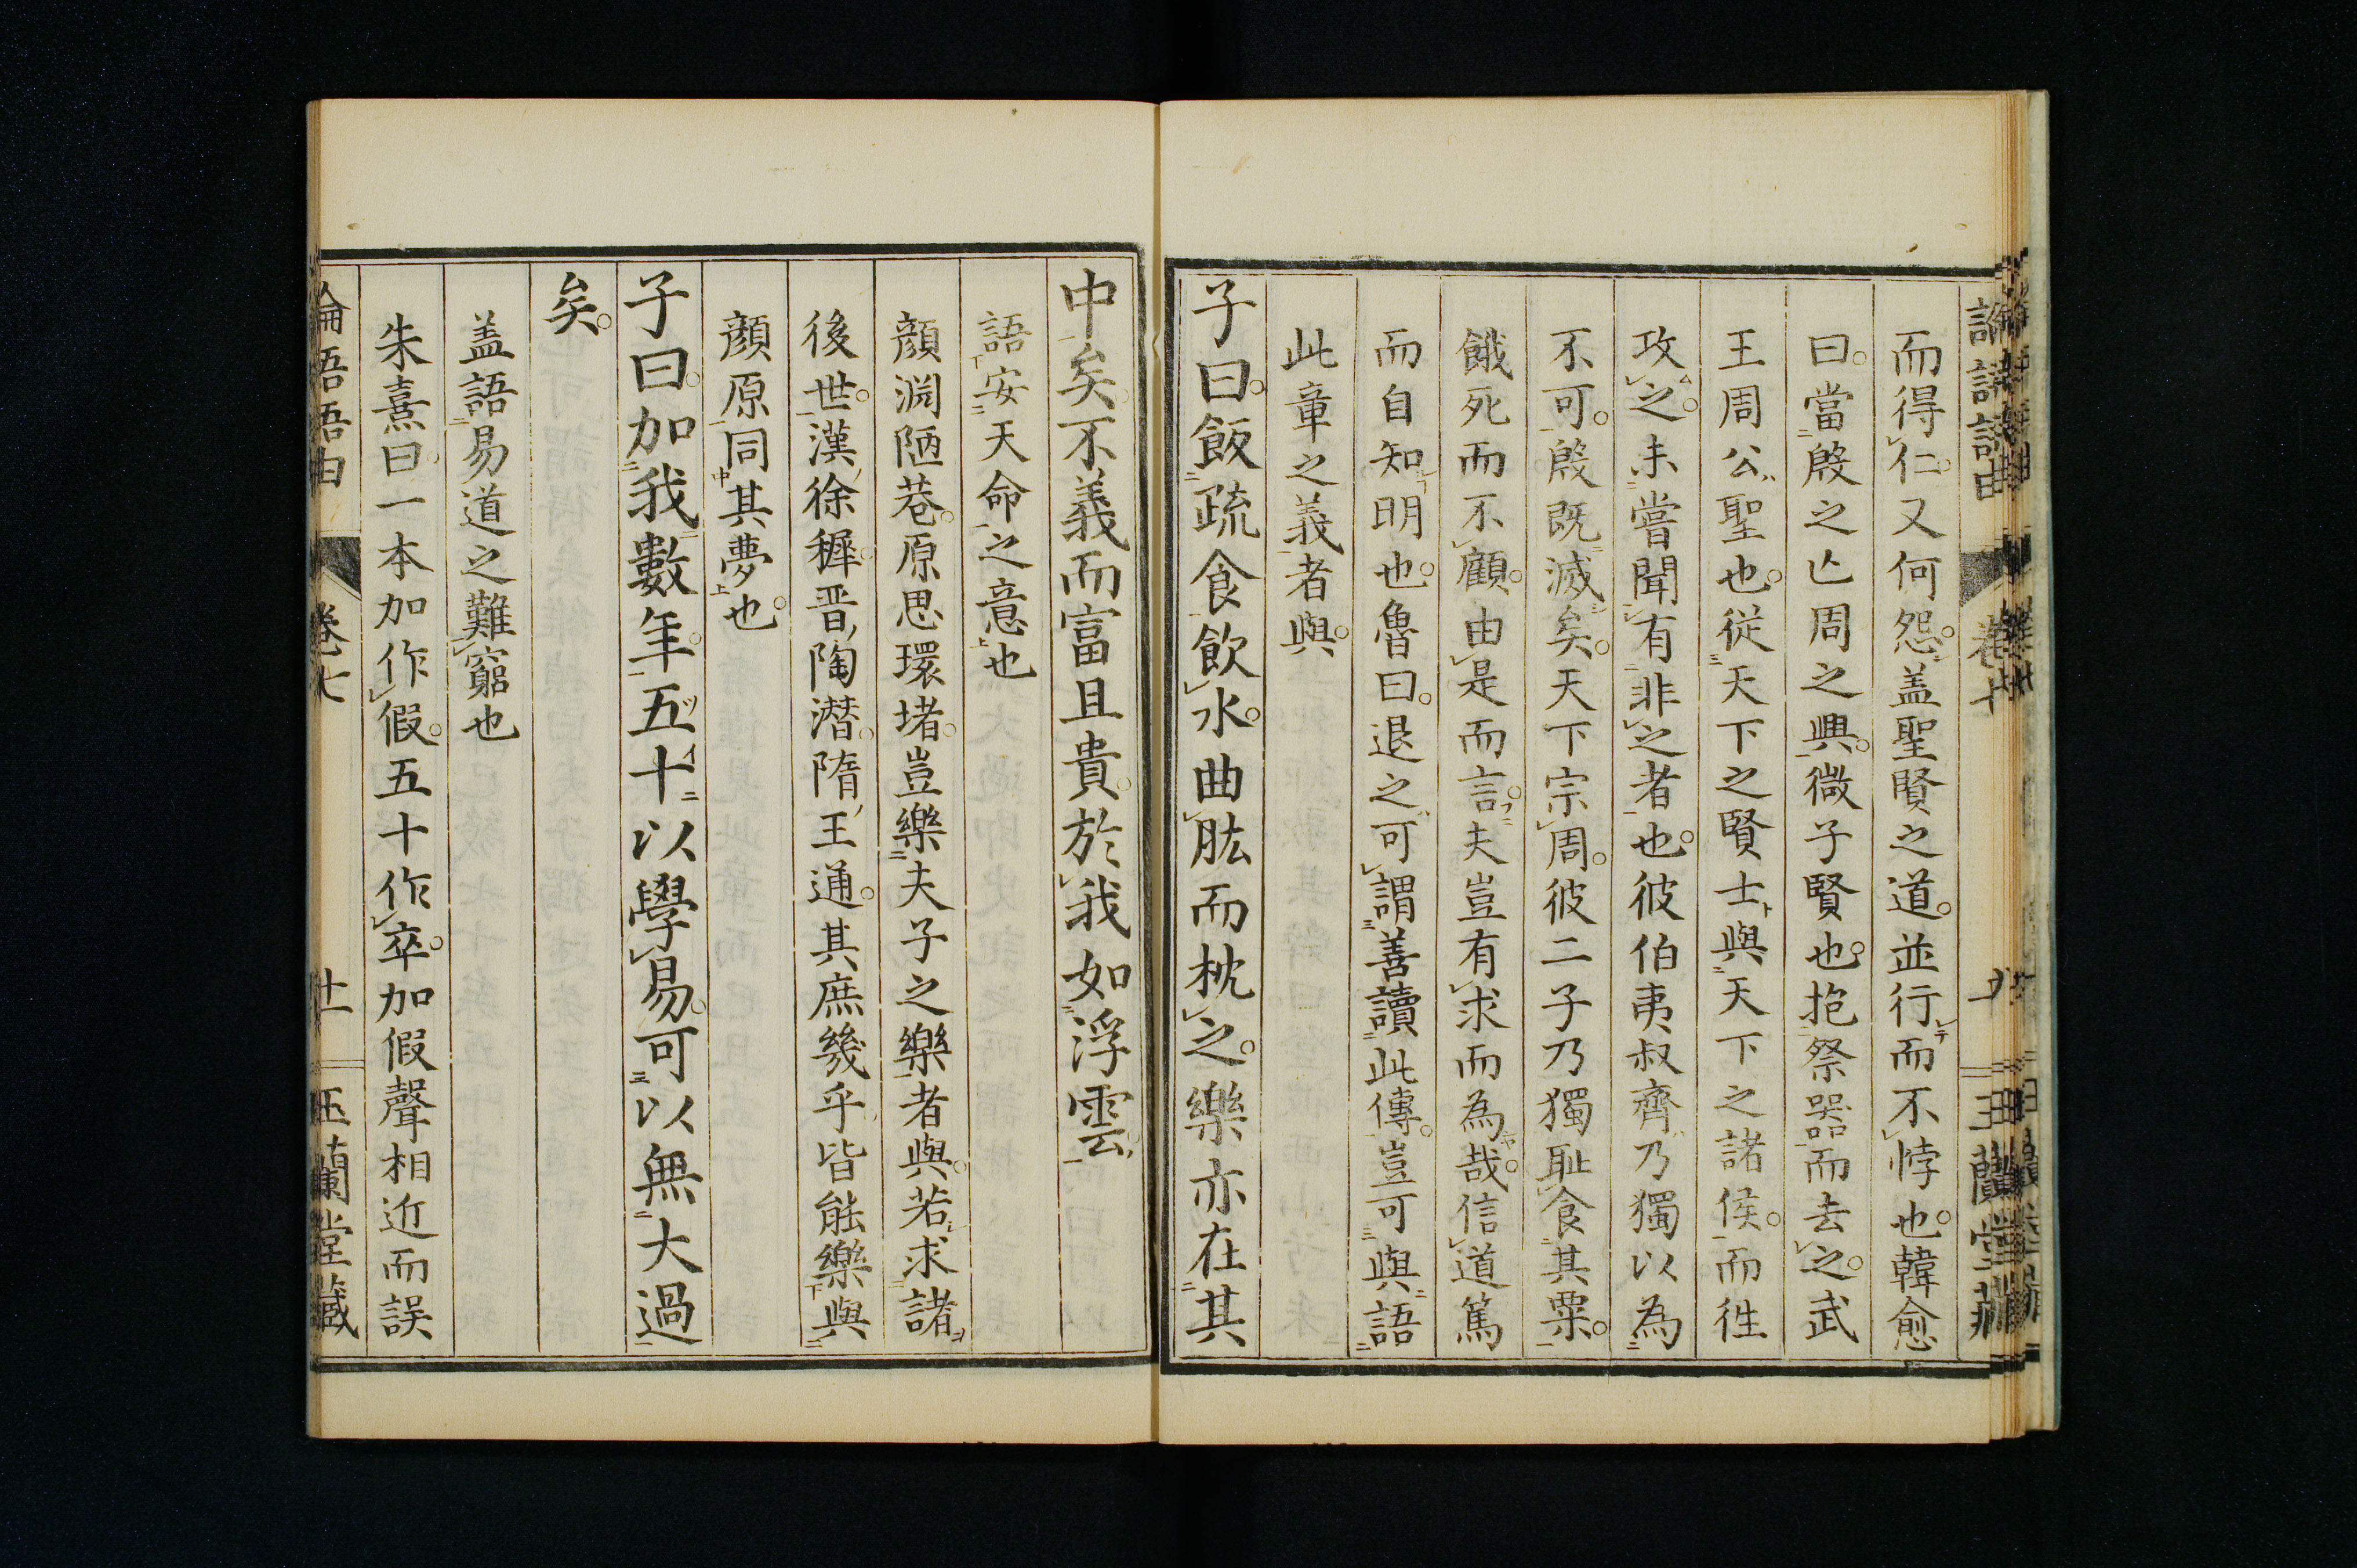 論語語由 卷七 玉蘭堂藏
而得仁又何怨盖聖賢之道並行而不悖也韓愈
曰當殷之亾周之興微子賢也抱祭器而去之武
王周公聖也從天下之賢士與天下之諸侯而徃
攻之未嘗聞有非之者也彼伯夷叔齊乃獨以為
不可殷既滅矣天下宗周彼二子乃獨耻食其粟
餓死而不顧由是而言夫豈有求而為哉信道篤
而自知明也魯曰退之可謂善讀此傳豈可與語
此章之義者與
子曰飯疏食飲水曲肱而枕之樂亦在其
中矣不義而富且貴於我如浮雲
語安天命之意也
顔淵陋巷原思環堵豈樂夫子之樂者與若求諸
後世漢徐穉晋陶潜隋王通其庶幾乎皆能樂與
顔原同其夢也
子曰加我數年五十以學易可以無大過
矣
盖語易道之難窮也
朱熹曰一本加作假五十作卒加假聲相近而誤
論語語由 卷七 十一 玉蘭堂藏